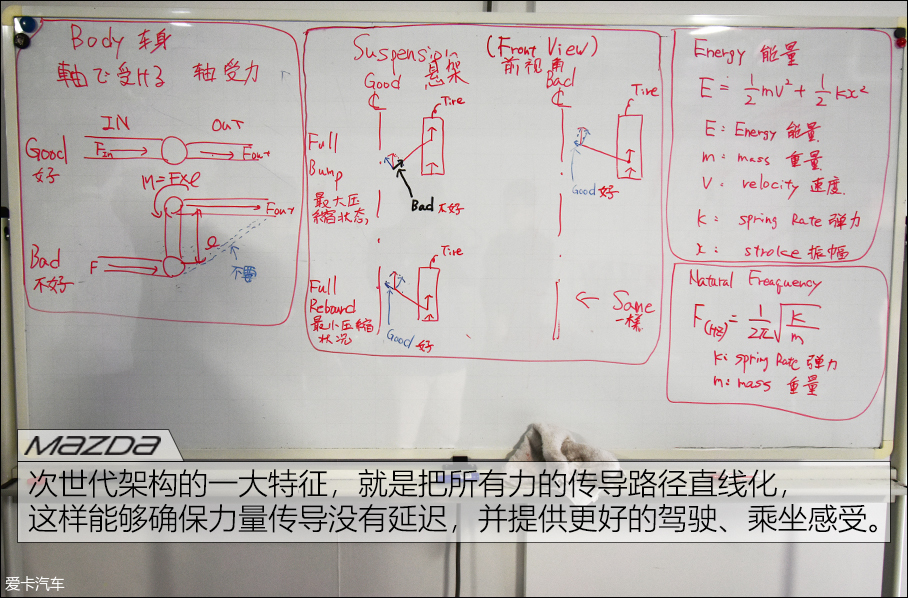 Body 车身
軸で受ける 轴受力
IN OUT
Good
好
Fin Fout
M=F×l
Fout
l
Bad
不好
F
不要
Suspension (Front View)
悬架 前视角
Good Bad
Tire Tire
Full
Bump
最大压
縮状态
Bad 不好
Good 好
Tire
Full
Rebound
最小压缩
状况
Good 好
← Same
一樣
Energy 能量
E = 1/2 mv² + 1/2 kx²
E: Energy 能量
m: mass 重量
V: velocity 速度
k: spring Rate 弹力
x: stroke 振幅
Natural Freaquency
F(Hz) = 1/2π √k/m
k: spring Rate 弹力
m: mass 重量
MAZDA
次世代架构的一大特征，就是把所有力的传导路径直线化，
这样能够确保力量传导没有延迟，并提供更好的驾驶、乘坐感受。
爱卡汽车